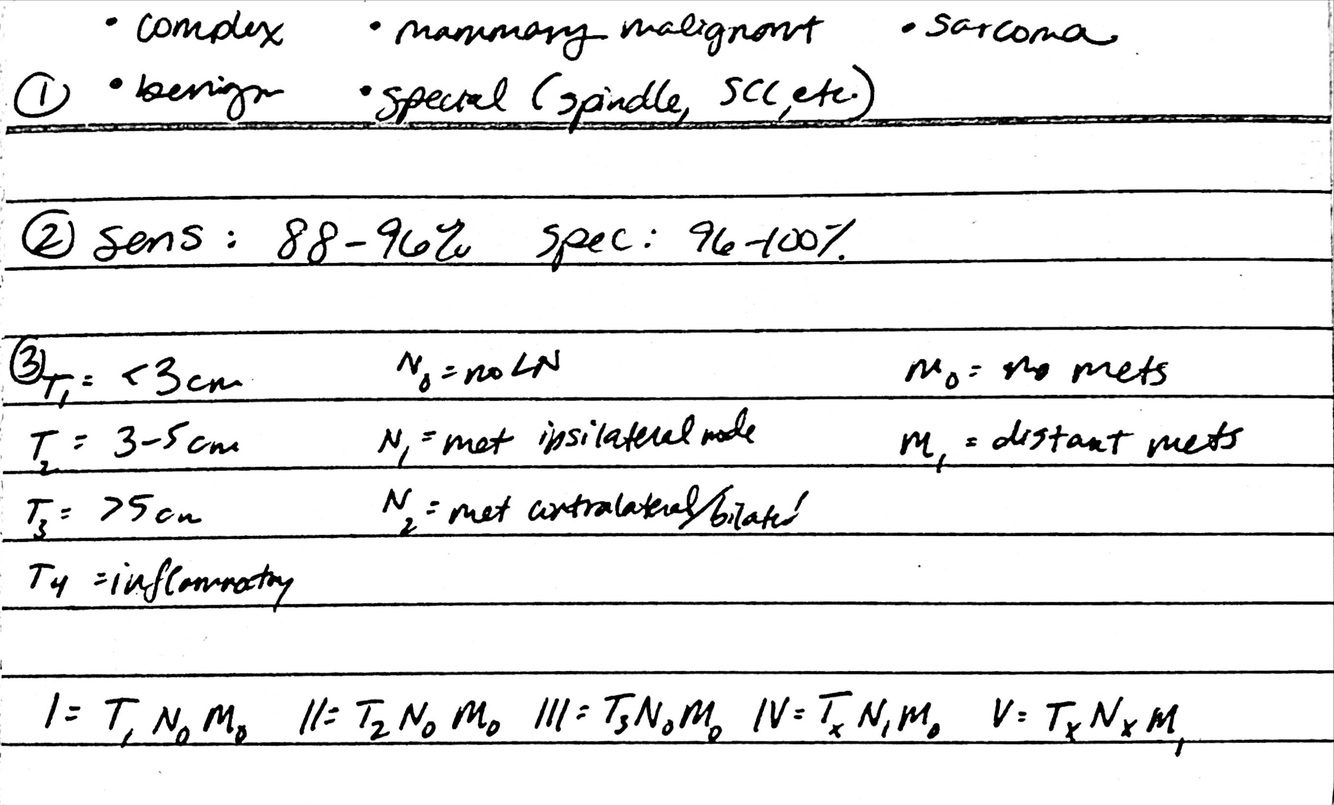 • complex • mammary malignant • sarcoma
① • benign • special (spindle, SCC, etc.)
② sens : 88-96% spec : 96-100%
③ T₁ = <3cm N₀ = no LN M₀ = no mets
T₂ = 3-5cm N₁ = met ipsilateral node M₁ = distant mets
T₃ = >5cm N₂ = met contralateral/bilateral
T4 = inflammatory
I = T₁ N₀ M₀ II = T₂ N₀ M₀ III = T₃ N₀ M₀ IV = Tₓ N₁ M₀ V = Tₓ Nₓ M₁